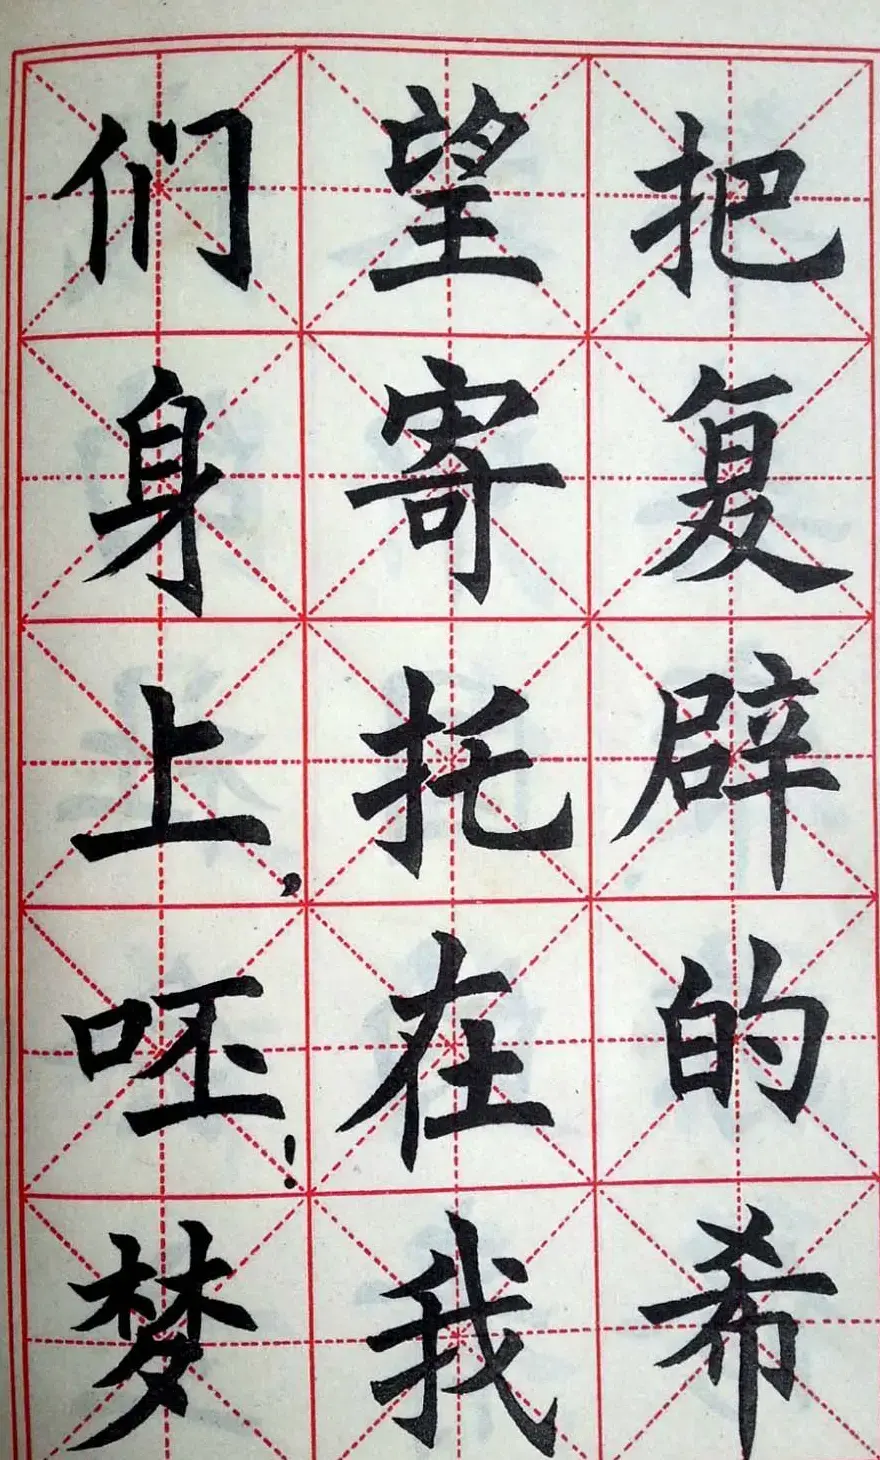 把复辟的希
望寄托在我
们身上，呸！梦